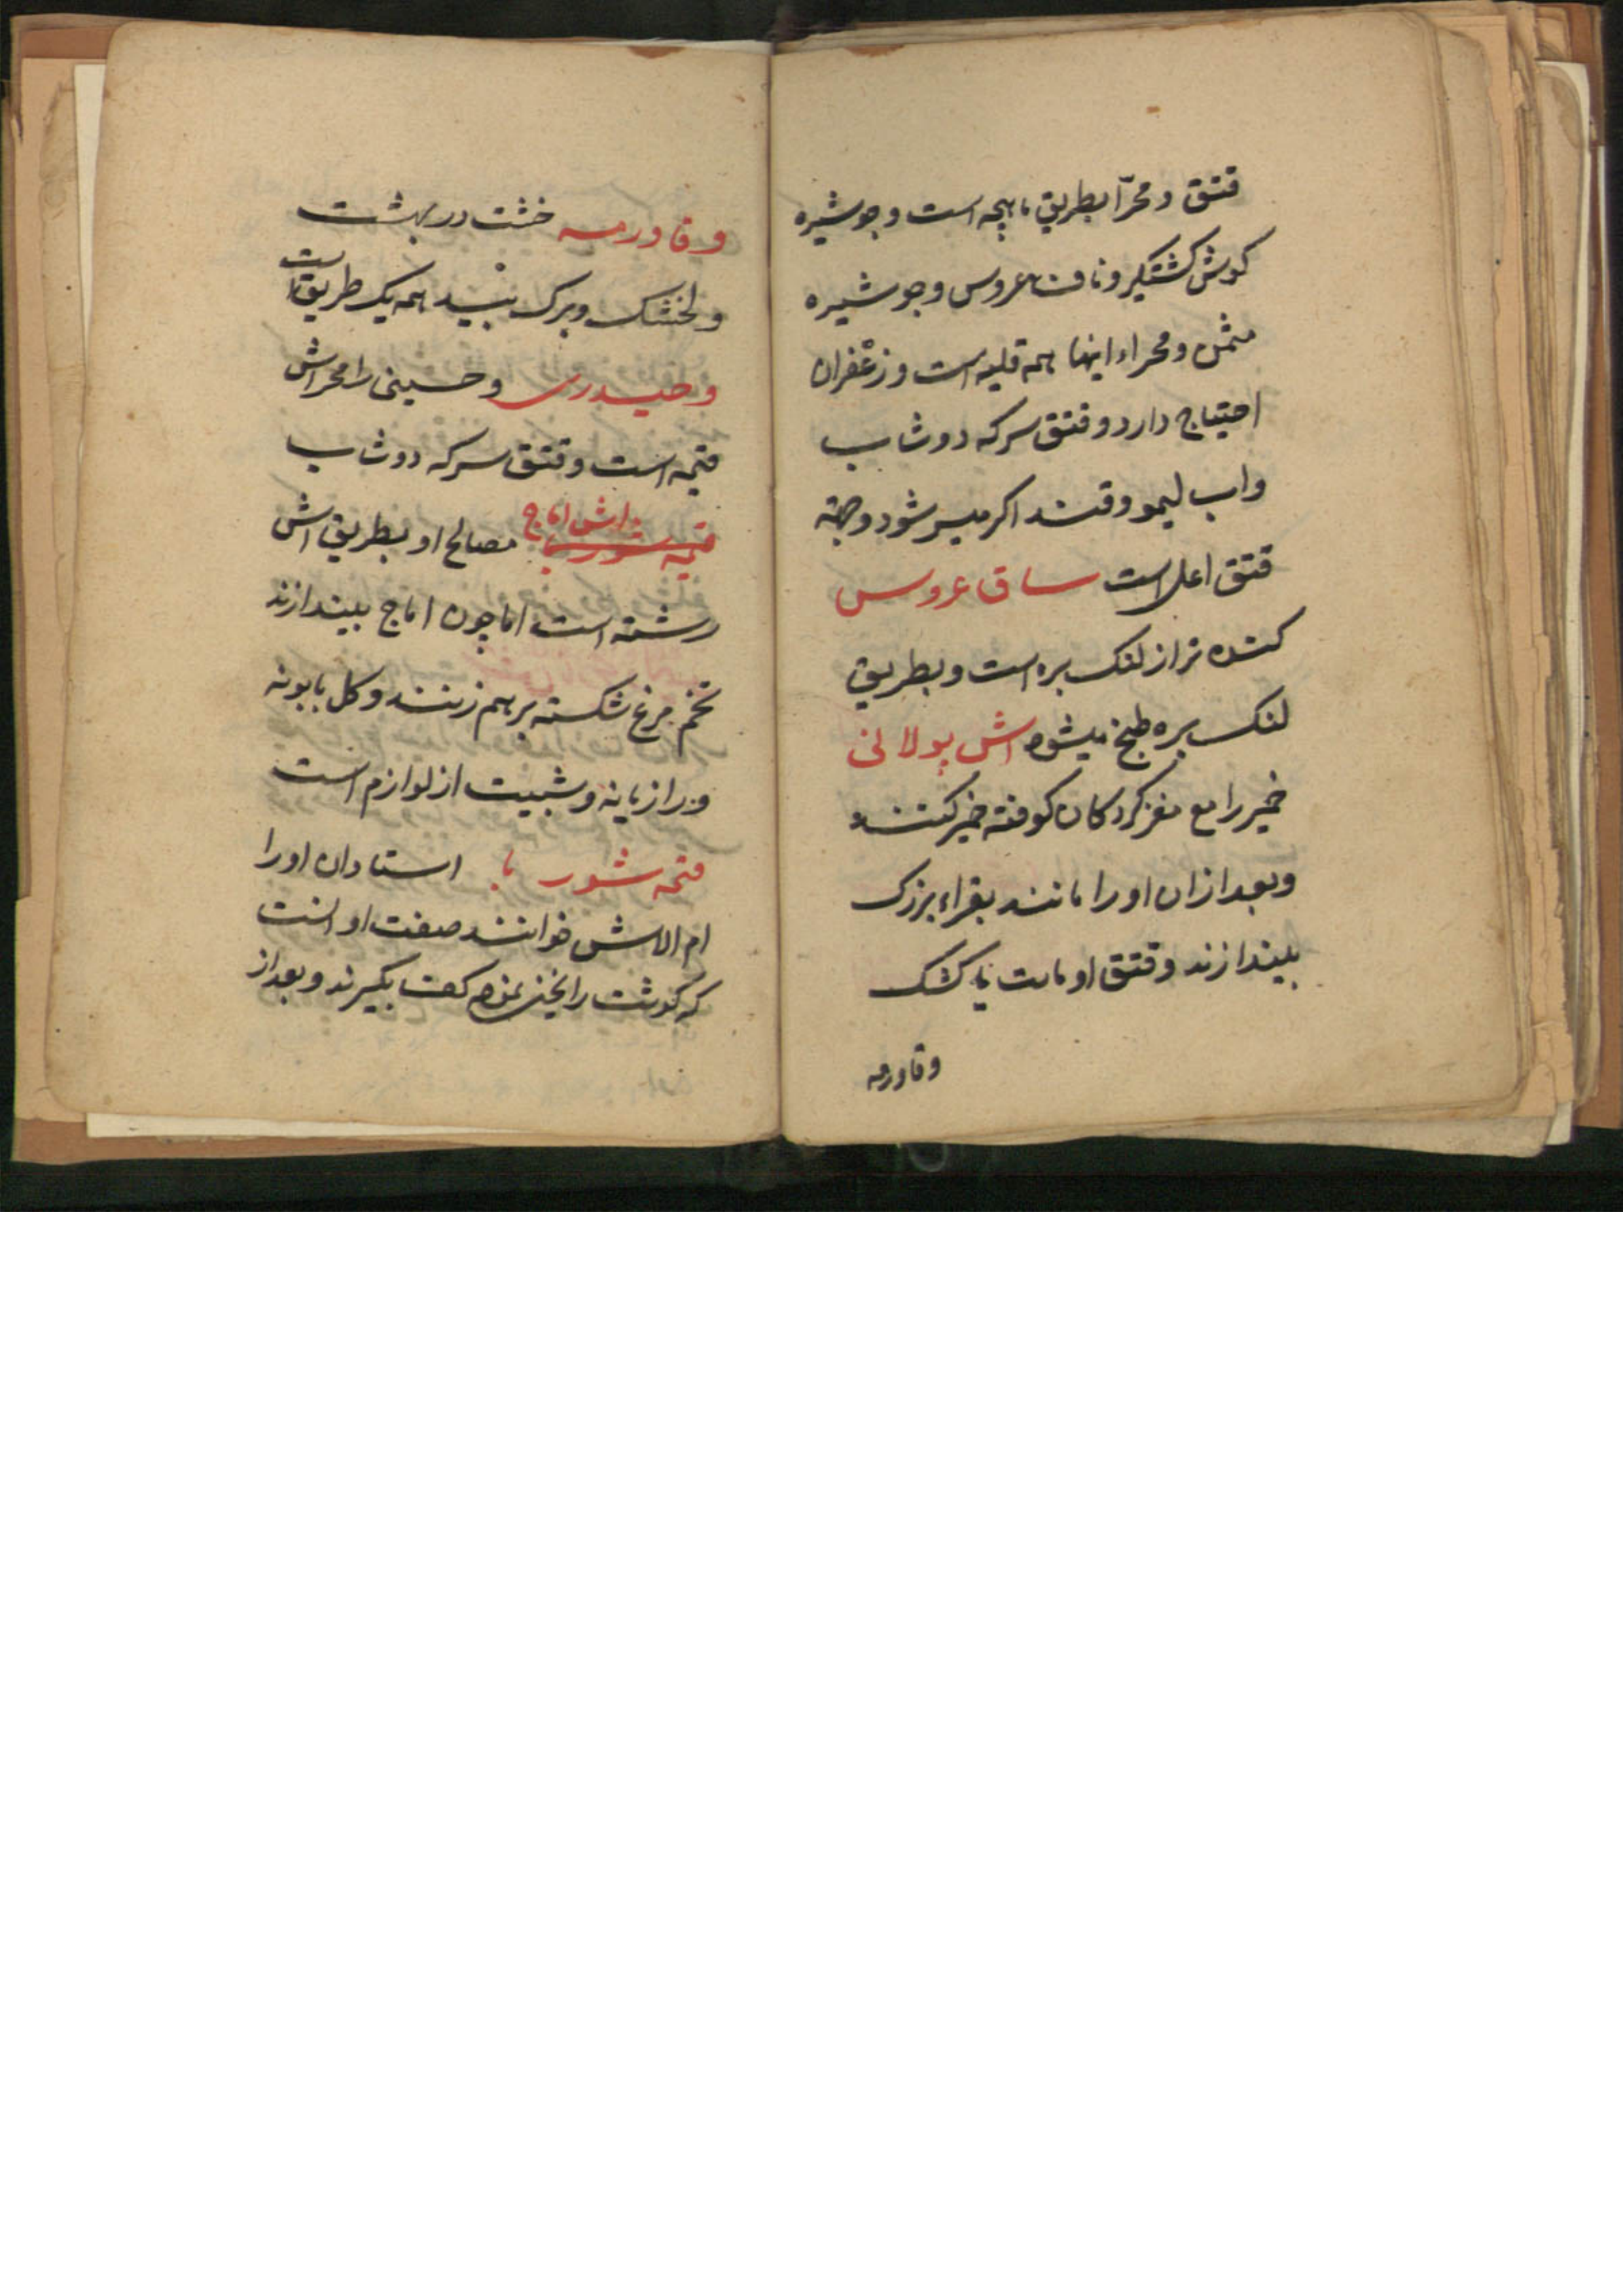 قتق و محرّا بطریق ماهیچه است و جوشیره
کوش کشتکیر و ناف عروس و جوشیره
مثمن و محراء اینها همه قلیه است و زعفران
احتیاج دارد و قتق سرکه دوشاب
واب لیمو و قند اکر میسر شود و جهته
قتق اعلی است ساق عروس
کنده تر از لنک بره است و بطریق
لنک بره طبخ میشود اش بولانی
خمیر را مع مغز کردکان کوفته خمیر کنند
و بعد از ان او را مانند بقراء بزرک
بیندازند و قتق او ماست یا کشک
و قاورمه
و قاورمه خشت در بهشت
و لخشک و برک بید همه یک طریق است
و حیدری و حسینی را محراش
قیمه است و قتق سرکه دوشاب
قیمه شوربا اش اماج مصالح او بطریق اش
رشته است اما چون اماج بیندازند
تخم مرغ شکسته بر هم زنند و کل بابونه
و رازیانه و شبیت از لوازم است
قیمه شوربا استادان او را
ام الاش خوانند صفت او انست
که کوشت را یخنی نموده کف بکیرند و بعد از